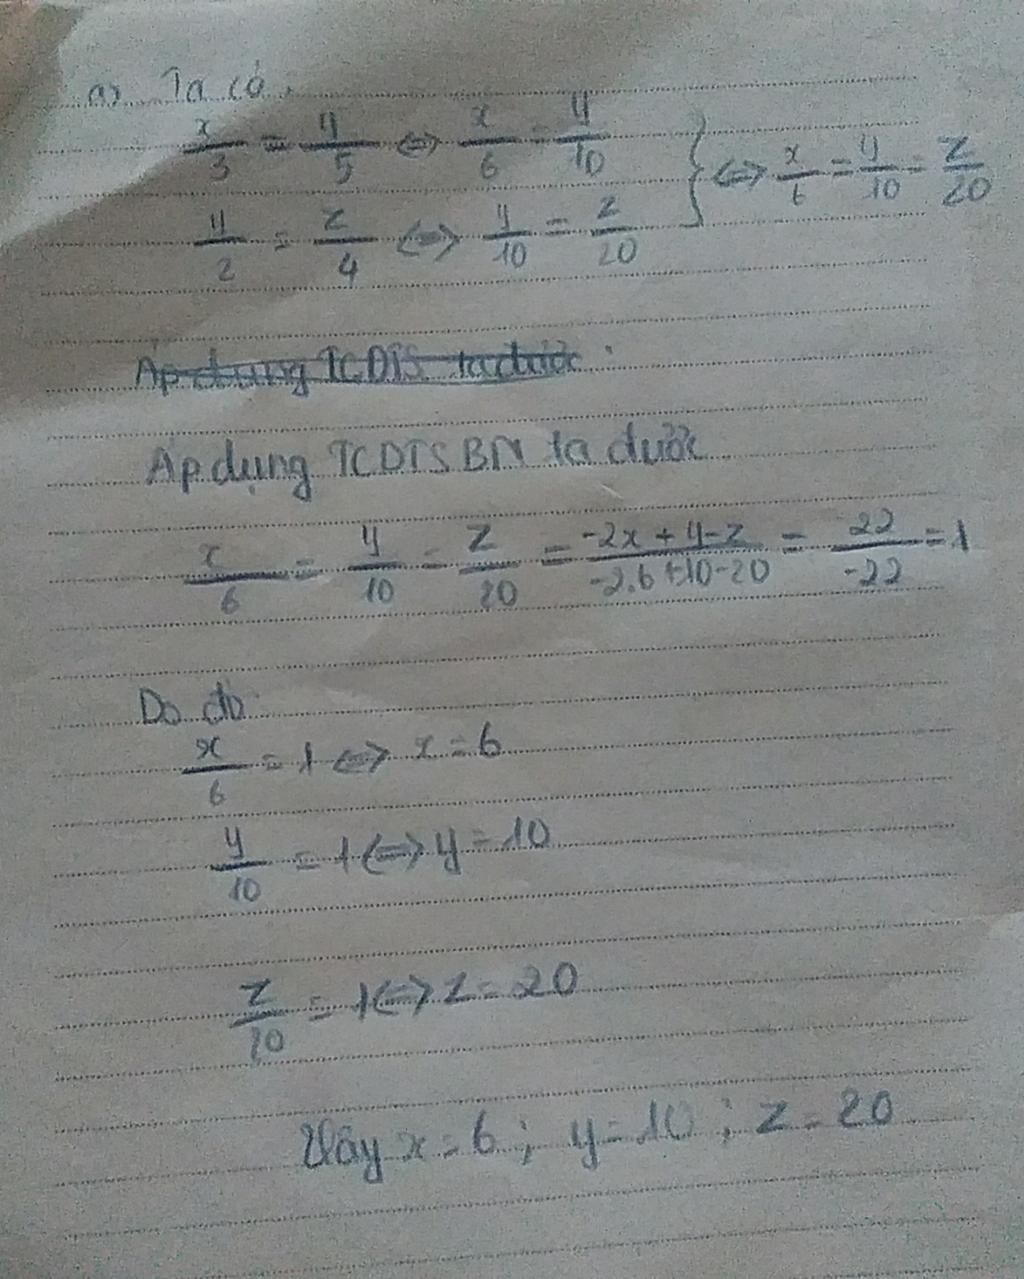 a) Ta có.
x/3 = y/5 <=> x/6 = y/10
y/2 = z/4 <=> y/10 = z/20 } <=> x/6 = y/10 = z/20
Áp dụng TCDTS ta được:
Áp dụng TCDTSBN ta được
x/6 = y/10 = z/20 = -2x+y-z/-2.6+10-20 = 22/-22 = 1
Do đó
x/6 = 1 <=> x = 6
y/10 = 1 <=> y = 10
z/20 = 1 <=> z = 20
Vậy x = 6; y = 10; z = 20